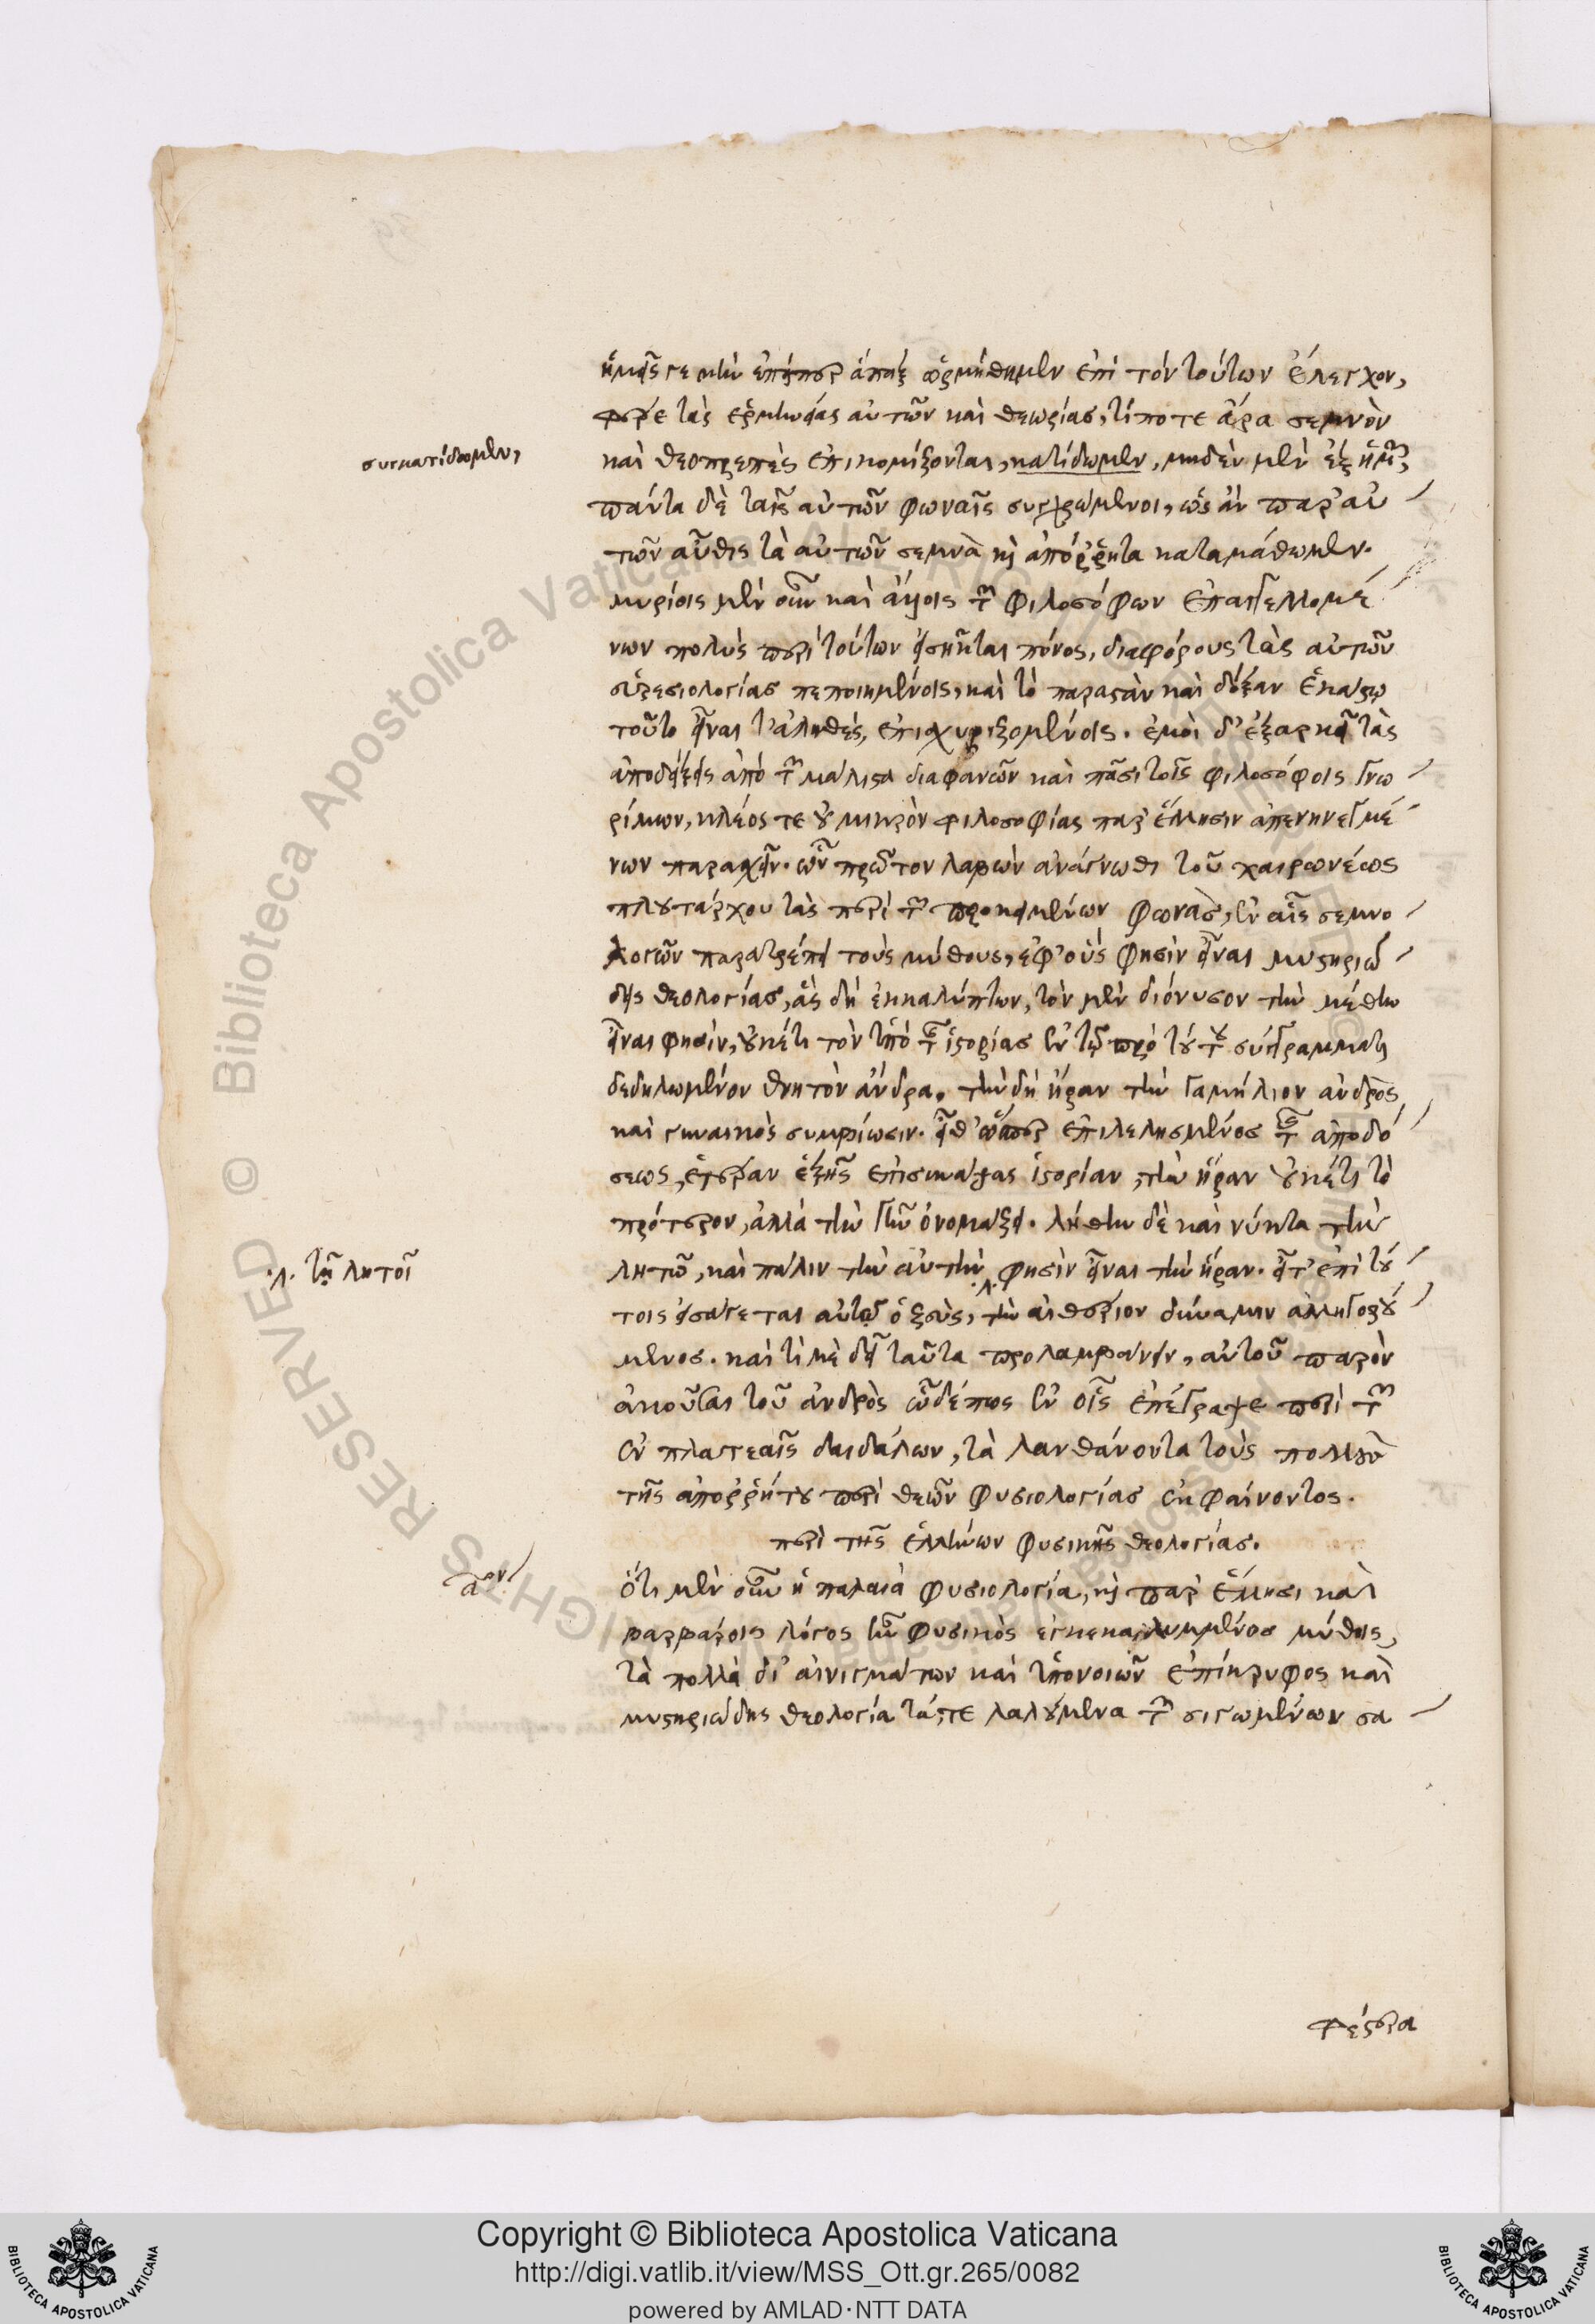 ἡμεῖς γε μὴν ἐπείπερ ἅπαξ ὡρμήθημεν ἐπὶ τὸν τούτων ἔλεγχον,
φέρε τὰς ἑρμηνείας αὐτῶν καὶ θεωρίας, τί ποτε ἄρα σεμνὸν
συγκατίδωμεν,
καὶ θεοπρεπὲς ἐπικομίζονται, κατίδωμεν, μηδὲν μὲν ἐξ ἡμῶν,
πάντα δὲ ταῖς αὐτῶν φωναῖς συγχρώμενοι, ὡς ἂν παρ' αὐ
τῶν αὖθις τὰ αὐτῶν σεμνὰ καὶ ἀπόρρητα καταμάθωμεν.
μυρίοις μὲν οὖν καὶ ἄλλοις τῶν φιλοσόφων ἐπαγγελλομέ
νων πολὺς περὶ τούτων εἰσῆκται πόνος, διαφόρους τὰς αὐτῶν
εὑρεσιολογίας πεποιημένοις, καὶ τὸ παραστὰν καὶ δόξαν ἑκάστῳ
τοῦτο εἶναι τ' ἀληθές, ἐπισχυριζομένοις. ἐμοὶ δ' ἐξαρκεῖ τὰς
ἀποδείξεις ἀπὸ τῶν μάλιστα διαφανῶν καὶ πᾶσι τοῖς φιλοσόφοις γνω
ρίμων, κλέος τε οὐ μικρὸν φιλοσοφίας παρ' ἕλλησιν ἀπενηνεγμέ
νων παρασχεῖν. ὧν πρῶτον λαβὼν ἀνάγνωθι τοῦ χαιρωνέως
πλουτάρχου τὰς περὶ τῶν προκειμένων φωνάς, ἐν αἷς σεμνο
λογῶν παρατρέπει τοὺς μύθους, ἐφ' οὕς φησὶν εἶναι μυστηριώ
δεις θεολογίας, ἃς δὴ ἐκκαλύπτων, τὸν μὲν διόνυσον τὴν μέθην
εἶναι φησίν, οὐκέτι τὸν ὑπὸ τῆς ἱστορίας ἐν τῷ πρὸ τούτου συγγράμματι
δεδηλωμένον θνητὸν ἄνδρα. τὴν δὴ ἥραν τὴν γαμήλιον ἀνδρὸς
καὶ γυναικὸς συμβίωσιν. εἶθ' ὥσπερ ἐπιλελησμένος τῆς ἀποδό
σεως, ἑτέραν ἑξῆς ἐπισυνάψας ἱστορίαν, τὴν ἥραν οὐκέτι τὸ
πρότερον, ἀλλὰ τὴν γῆν ὀνομάζει. λήθην δὲ καὶ νύκτα τὴν
.λ. τῇ λητοῖ
λητώ, καὶ πάλιν τὴν αὐτὴν .λ. φησὶν εἶναι τὴν ἥραν. εἶτ' ἐπὶ τού
τοις εἰσάγεται αὐτῷ ὁ ζεύς, τὴν αἰθέριον δύναμιν ἀλληγορού
μενος. καὶ τί με δεῖ ταῦτα προλαμβάνειν, αὐτοῦ παρὸν
ἀκοῦσαι τοῦ ἀνδρὸς ὧδέ πως ἐν οἷς ἐπέγραψε περὶ τῶν
ἐν πλαταιαῖς δαιδάλων, τὰ λανθάνοντα τοὺς πολλοὺς
τῆς ἀπορρήτου περὶ θεῶν φυσιολογίας ἐκφαίνοντος.
περὶ τῆς ἑλλήνων φυσικῆς θεολογίας.
αον
ὅτι μὲν οὖν ἡ παλαιὰ φυσιολογία, καὶ παρ' ἕλλησι καὶ
βαρβάροις λόγος ἦν φυσικὸς ἐγκεκαλυμμένος μύθοις,
τὰ πολλὰ δι' αἰνιγμάτων καὶ ὑπονοιῶν ἐπίκρυφος καὶ
μυστηριώδης θεολογία τά, τε λαλούμενα τῶν σιγωμένων σα
φέστερα
Copyright © Biblioteca Apostolica Vaticana
http://digi.vatlib.it/view/MSS_Ott.gr.265/0082
powered by AMLAD·NTT DATA